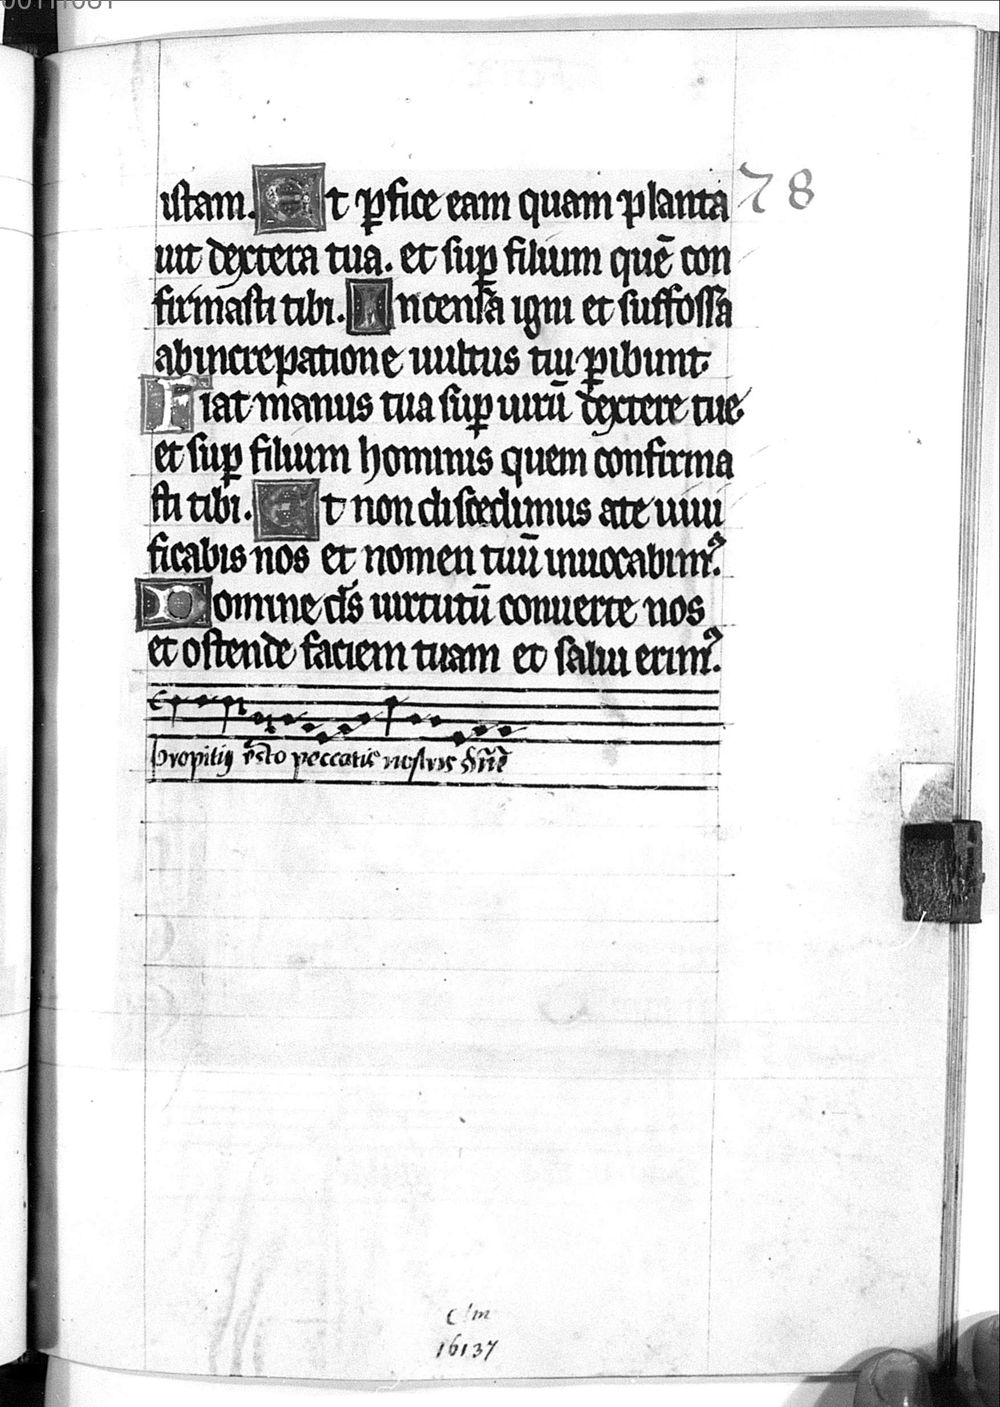 00111081
istam. Et ꝑfice eam quam planta 78
uit dextera tua. et suꝑ filium quē con
firmasti tibi. Incensa igni et suffossa
abincrepatione uultus tui ꝑibunt.
Fiat manus tua suꝑ uirū dextere tue
et suꝑ filium hominis quem confirma
sti tibi. Et non discedimus ate uiui
ficabis nos et nomen tuū inuocabimꝰ.
Domine ds̄ uirtutū conuerte nos
et ostende faciem tuam et salui erimꝰ.
Propitiꝰ esto peccatis nostris dn̄e
clm
16137